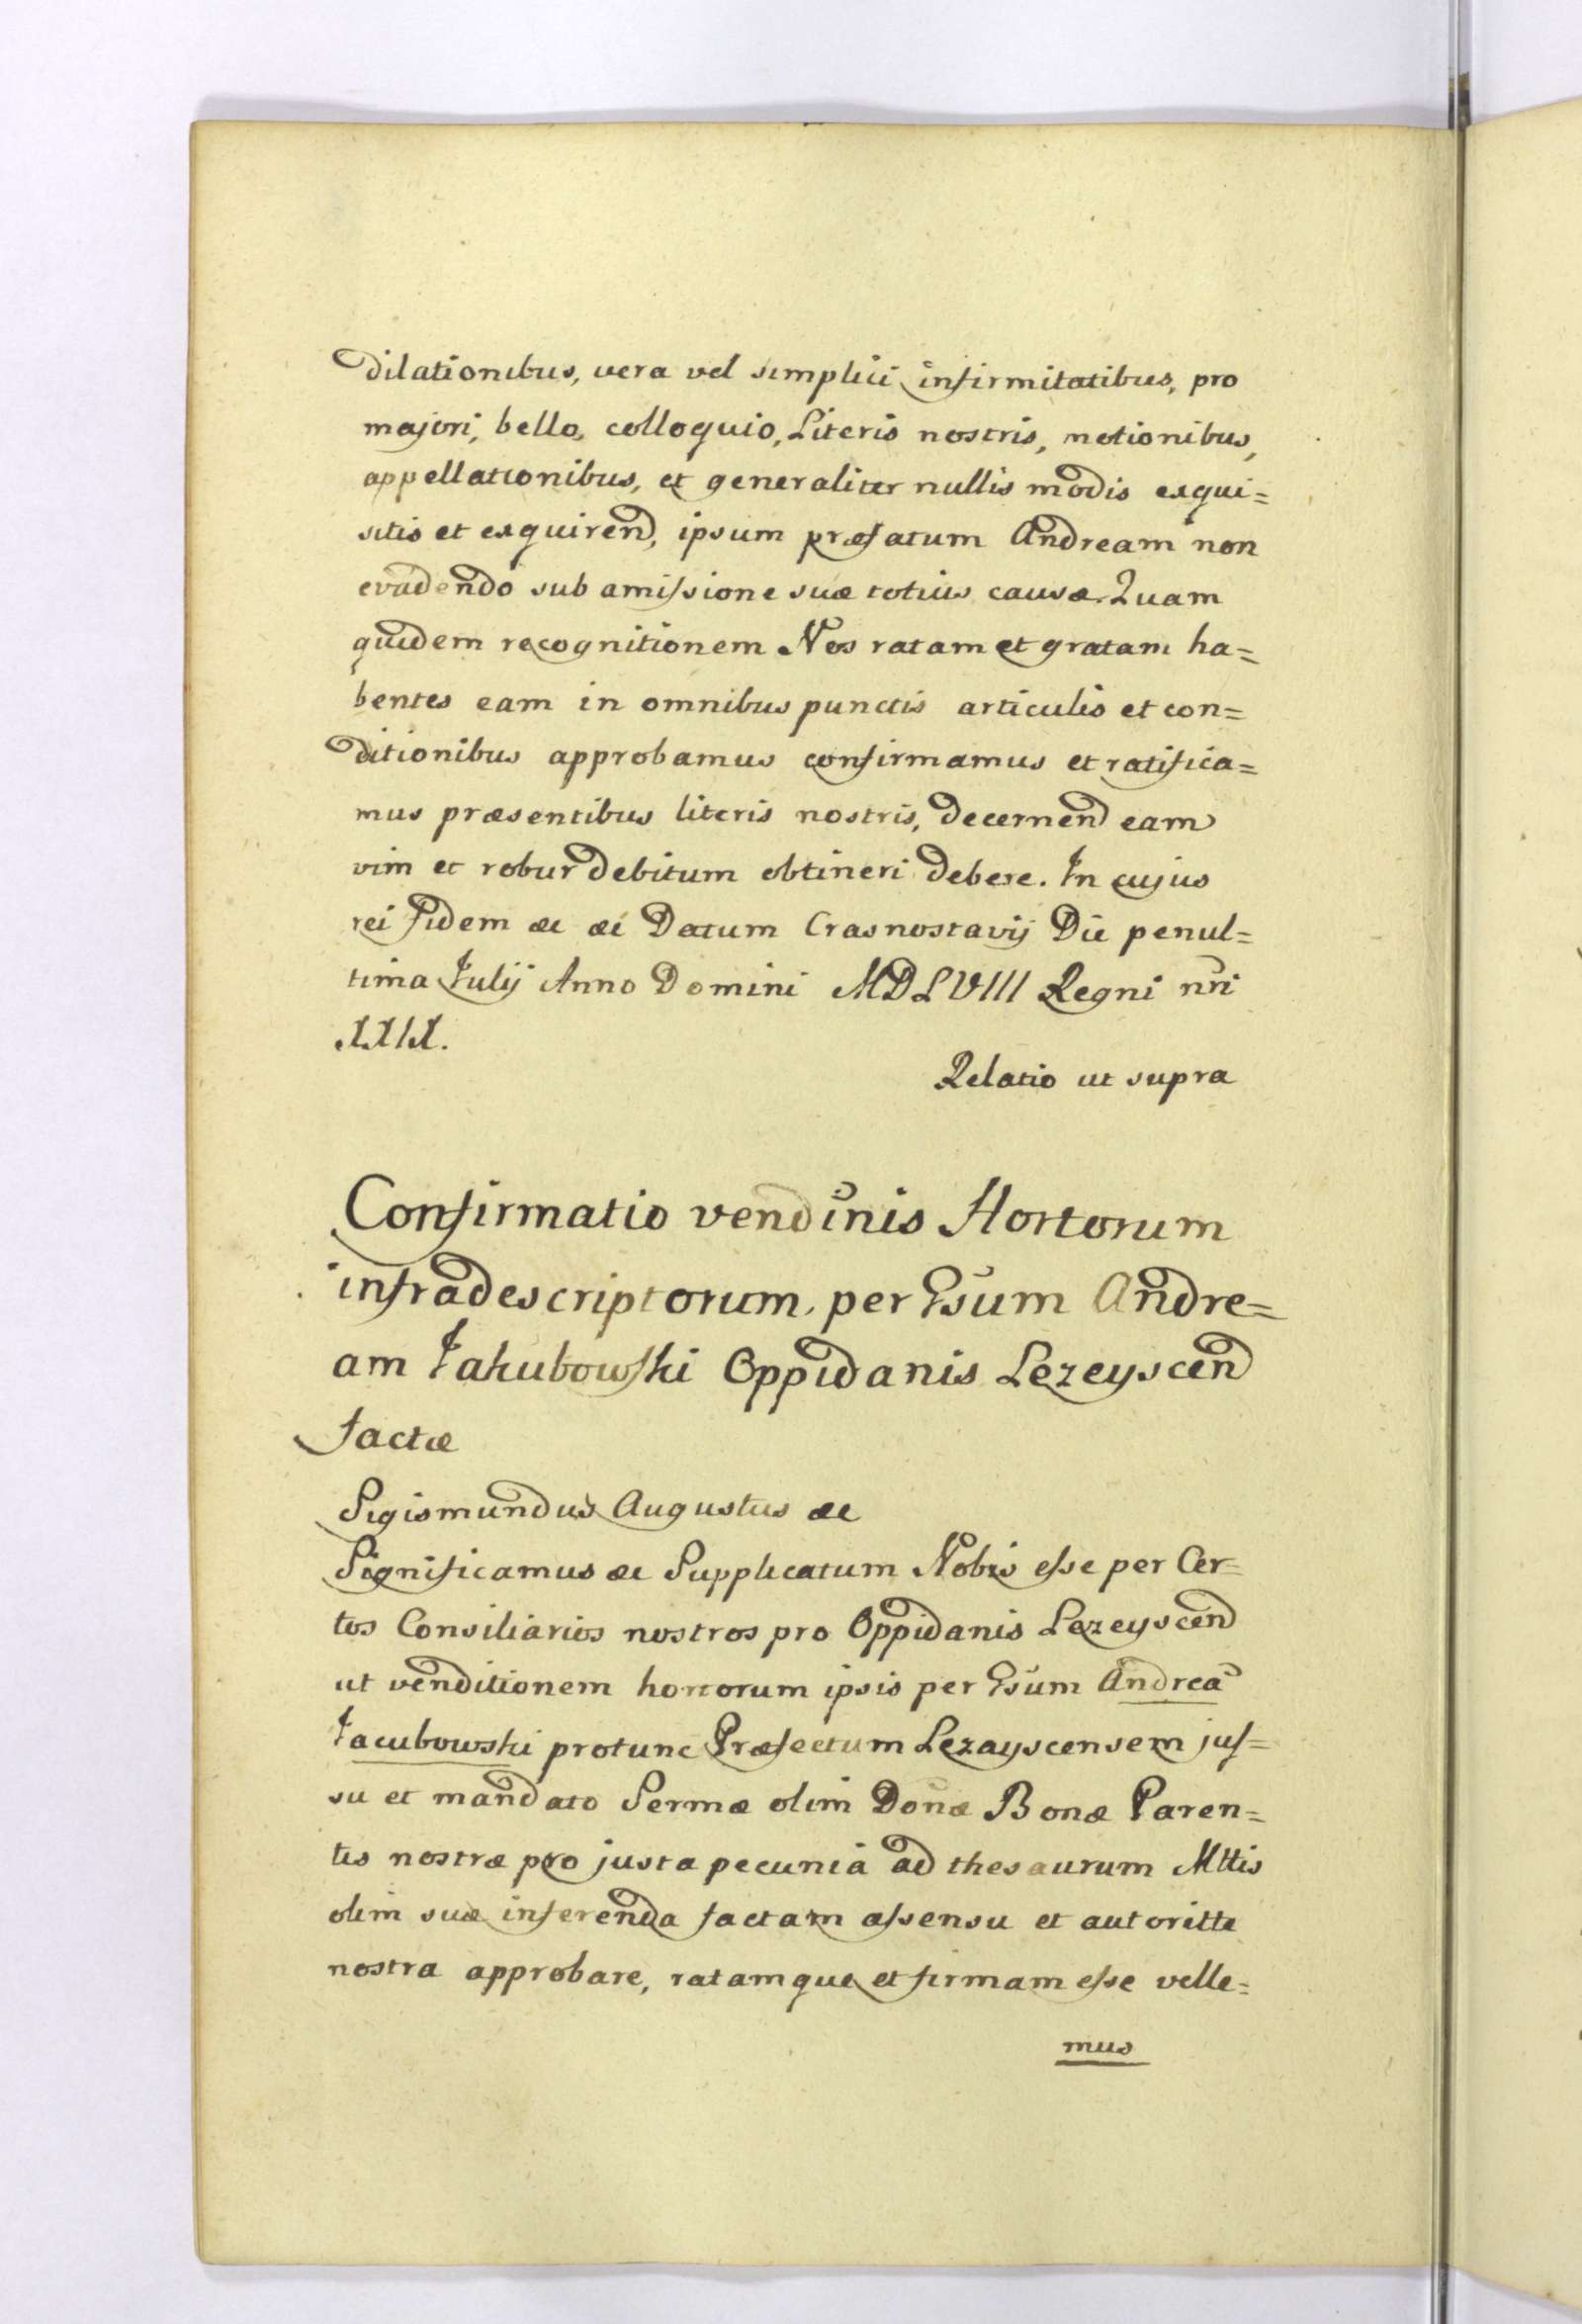 dilationibus, vera vel simplici infirmitatibus, pro
majori, bello, colloquio, Literis nostris, motionibus,
appellationibus, et generaliter nullis modis exqui=
sitis et exquirend, ipsum præfatum Andream non
evadendo sub amissione suæ totius causæ. Quam
quidem recognitionem Nos ratam et gratam ha=
bentes eam in omnibus punctis articulis et con=
ditionibus approbamus confirmamus et ratifica=
mus præsentibus literis nostris, decernend eam
vim et robur debitum obtineri debere. In cujus
rei fidem &c &c Datum Crasnostavij Die penul=
tima Julij Anno Domini MDLVIII Regni nri
XXIX.
Relatio ut supra
Confirmatio vendinis Hortorum
infradescriptorum, per Gsum Andre=
am Jakubowski Oppidanis Lezeyscen
factæ
Sigismundus Augustus &c
Significamus &c Supplicatum Nobis esse per Cer=
tos Consiliarios nostros pro Oppidanis Lezeyscen
ut venditionem hortorum ipsis per Gsum Andrea
Jacubowski protunc Præfectum Lezayscensem jus=
su et mandato Sermæ olim Donæ Bonæ Paren=
tis nostræ pro justa pecunia ad thesaurum Mttis
olim suæ inferenda factam assensu et autoritte
nostra approbare, ratamque et firmam esse velle=
mus